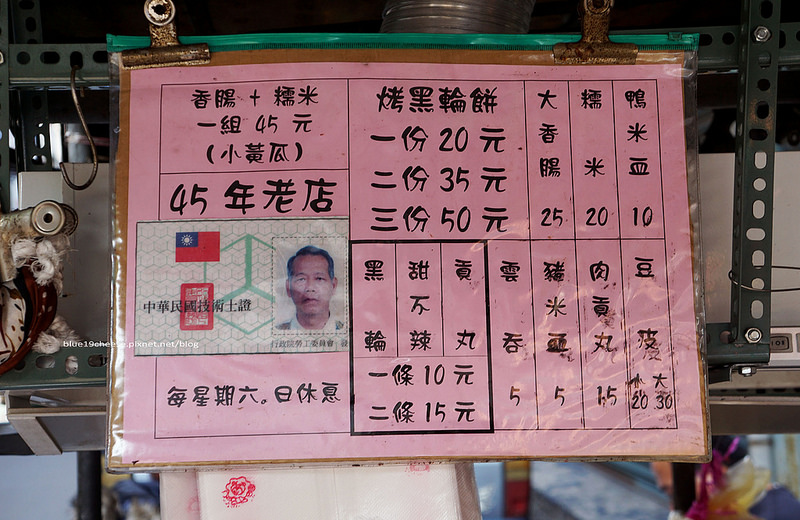 香腸 + 糯米
一組 45 元
(小黃瓜)
45 年老店
中華民國技術士證
行政院勞工委員會
每星期六。日休息
烤黑輪餅
一份 20 元
二份 35 元
三份 50 元
大香腸 25
糯米 20
鴨米血 10
黑輪
甜不辣
貢丸
一條 10 元
二條 15 元
雲吞 5
豬米血 5
肉貢丸 15
豆皮
小 20
大 30
blue19cheese.pixnet.net/blog